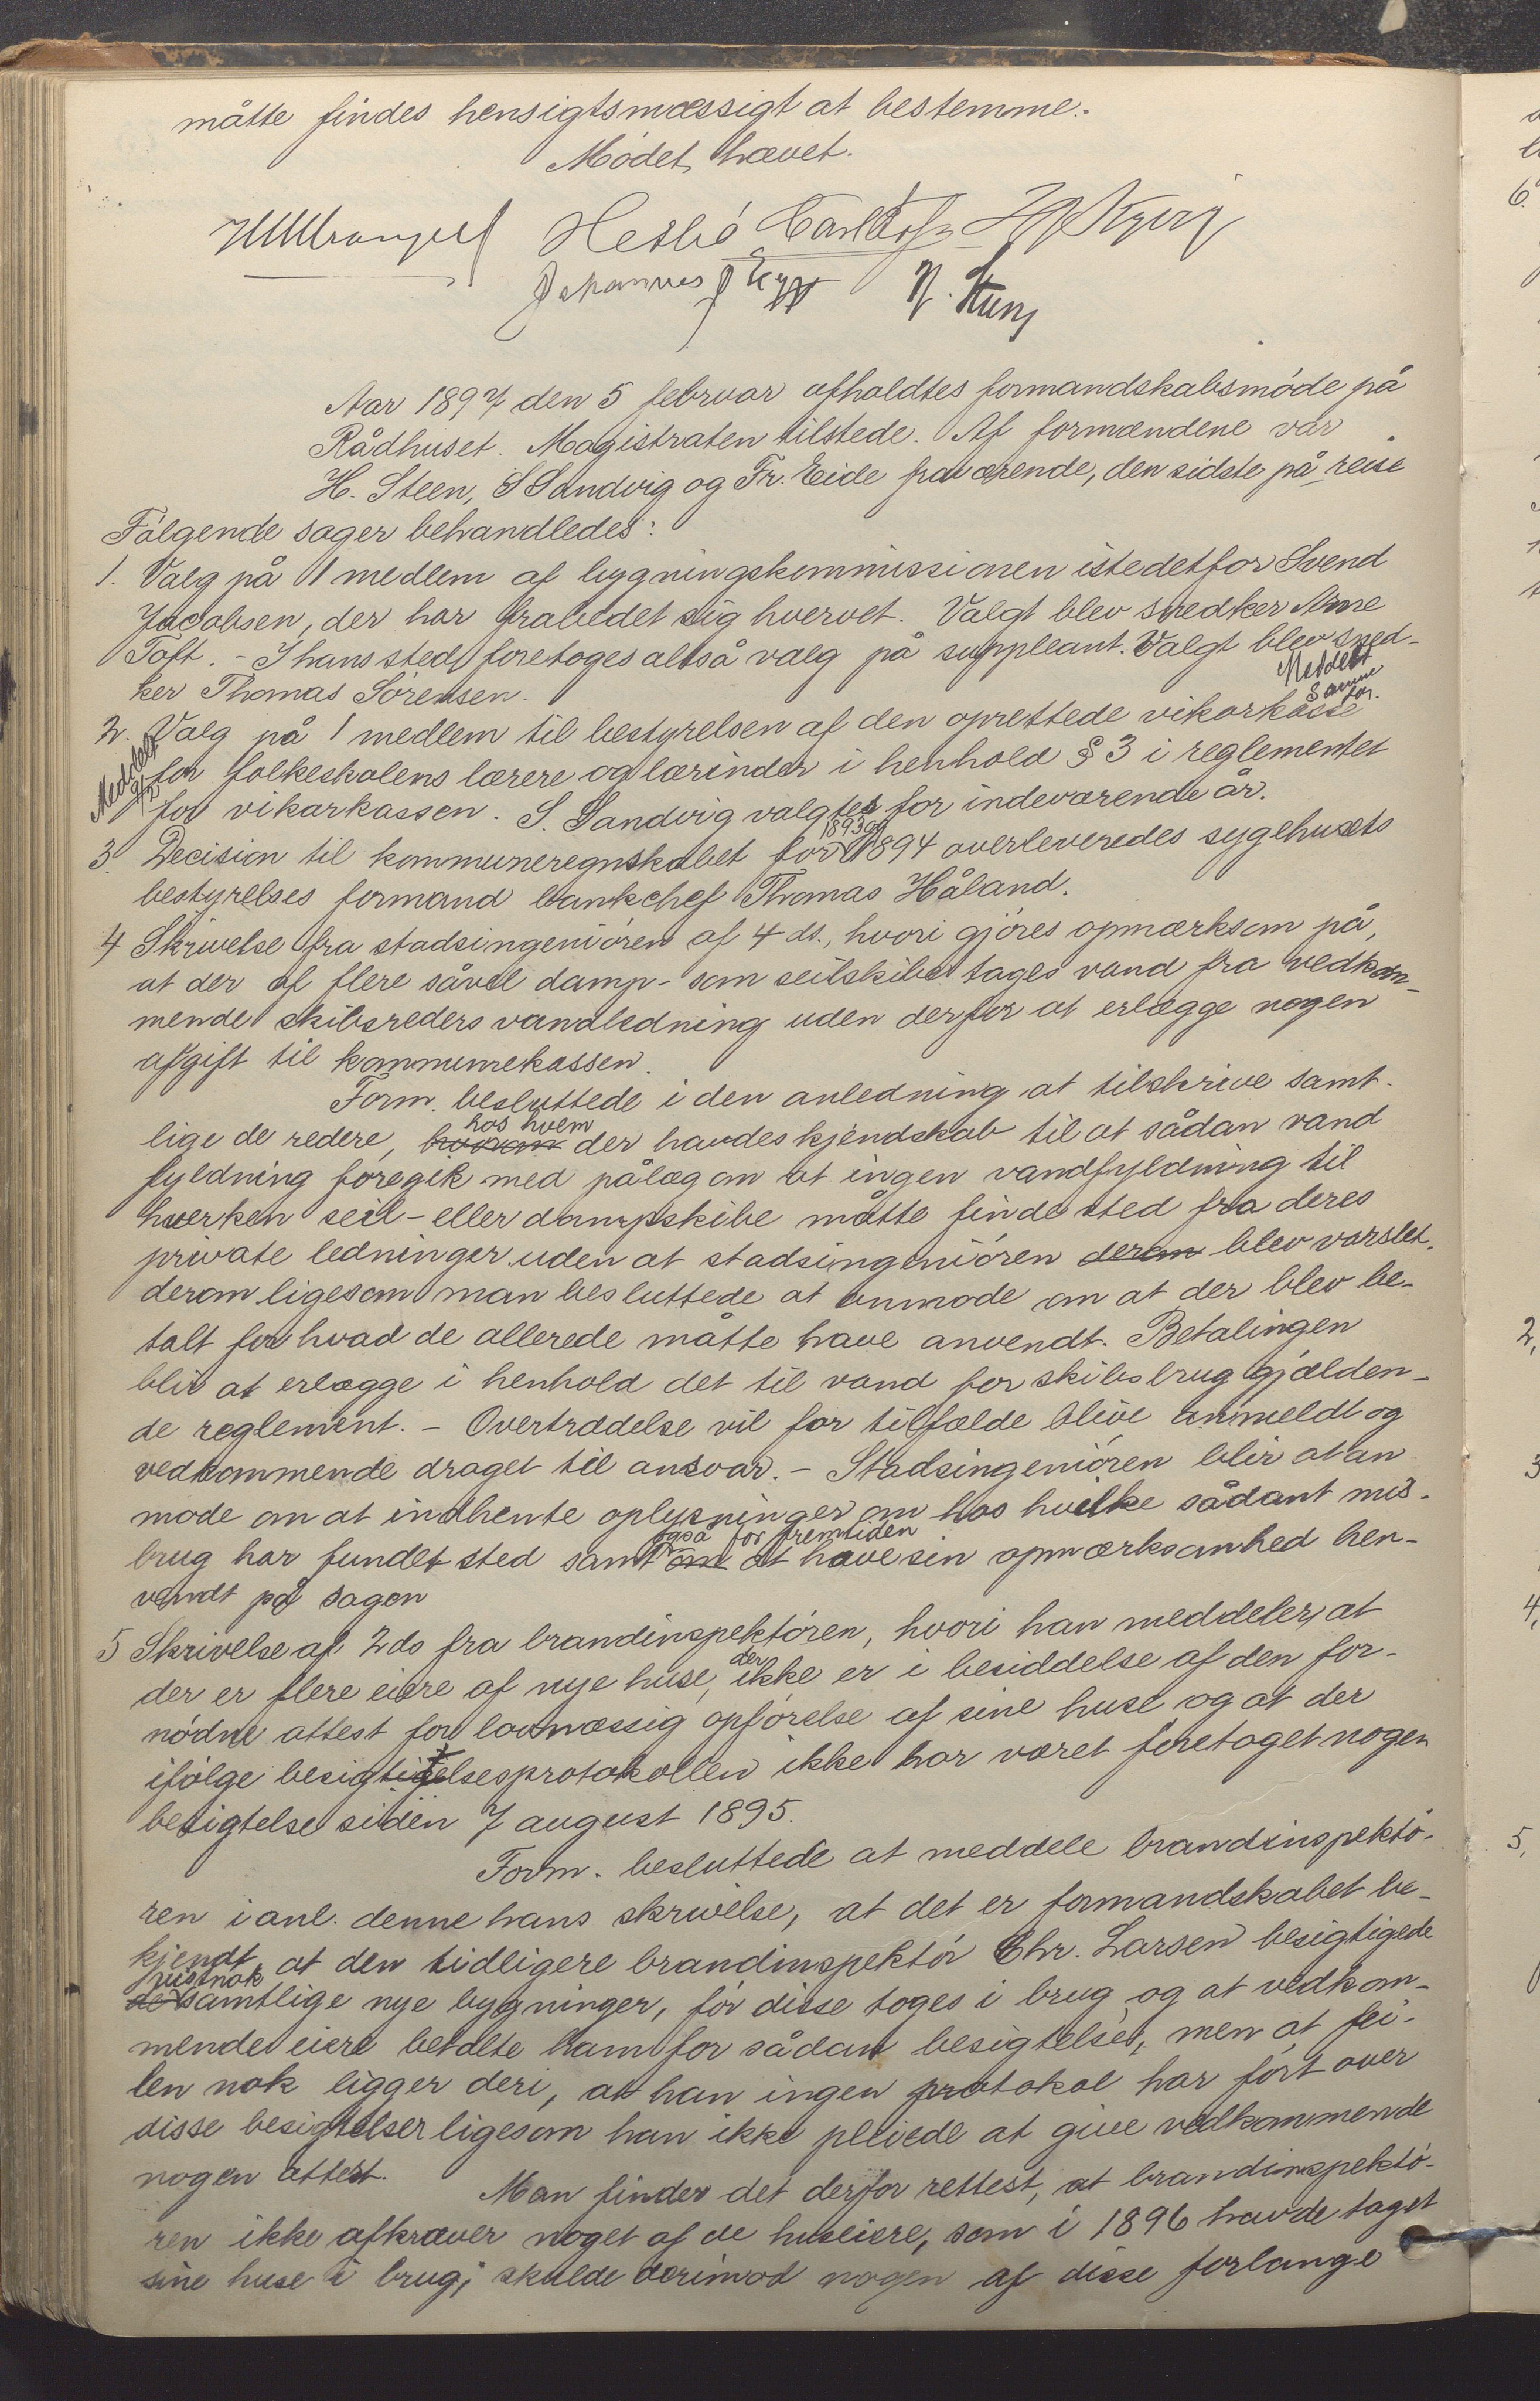 måtte findes hensigtsmæssigt at bestemme.
Mödet hævet.
Johannes
Aar 1897 den 5 februar afholdtes formandskabsmöde på
Rådhuset. Magistraten tilstede. Af formændene var
H. Steen, S Sandvig og Fr. Eide fraværende, den sidste på reise
Fölgende sager behandledes:
1. Valg på 1 medlem af bygningskommissionen istedetfor Svend
Jacobsen, der har frabedet sig hvervet. Valgt blev snedker Arne
Toft. - I hans sted foretoges altså valg på suppleant. Valgt blev sned-
ker Thomas Sörensen.
Meddelt
Samme
2. Valg på 1 medlem til bestyrelsen af den oprettede vikarkasse
Meddelt
for folkeskolens lærere og lærinder i henhold § 3 i reglementet
for vikarkassen. S. Sandvig valgtes for indeværende år.
1893 og
3. Decision til kommuneregnskabet for 1894 overleveredes sygehusets
bestyrelses formand bankchef Thomas Håland.
4 Skrivelse fra stadsingeniören af 4 ds., hvori gjöres opmærksom på,
at der af flere såvel damp- som seilskibe tages vand fra vedkom-
mende skibsreders vandledning uden derfor at erlægge nogen
afgift til kommunekassen.
Form. besluttede i den anledning at tilskrive samt-
hos hvem
lige de redere, hvorom der havdes kjendskab til at sådan vand
fyldning foregik med pålæg om at ingen vandfyldning til
hverken seil- eller dampskibe måtte finde sted fra deres
private ledninger uden at stadsingeniören derom blev varslet.
derom ligesom man besluttede at anmode om at der blev be-
talt for hvad de allerede måtte have anvendt. Betalingen
blir at erlægge i henhold det til vand for skibsbrug gjælden-
de reglement. - Overtrædelse vil for tilfælde blive anmeldt og
vedkommende draget til ansvar. - Stadsingeniören blir at an
mode om at indhente oplysninger om hos hvilke sådant mis-
også for fremtiden
brug har fundet sted samt om at have sin opmærksomhed hen-
vendt på sagen
5 Skrivelse af 2 ds fra brandinspektören, hvori han meddeler, at
der
der er flere eiere af nye huse, ikke er i besiddelse af den for-
nödne attest for lovmæssig opförelse af sine huse og at der
ifölge besigtigelsesprotokollen ikke har været foretaget nogen
besigtelse siden 7 august 1895.
Form. besluttede at meddele brandinspektö-
ren i anl. denne hans skrivelse, at det er formandskabet be-
kjendt, at den tidligere brandinspektör Chr. Larsen besigtigede
vistnok
de samtlige nye bygninger, för disse toges i brug og at vedkom-
mende eiere betalte ham for sådan besigtelse, men at fei-
len nok ligger deri, at han ingen protokol har fört over
disse besigtelser ligesom han ikke pleiede at give vedkommende
nogen attest.
Man finder det derfor rettest, at brandinspektö-
ren ikke afkræver noget af de huseiere, som i 1896 havde taget
sine huse i brug; skulde derimod nogen af disse forlange